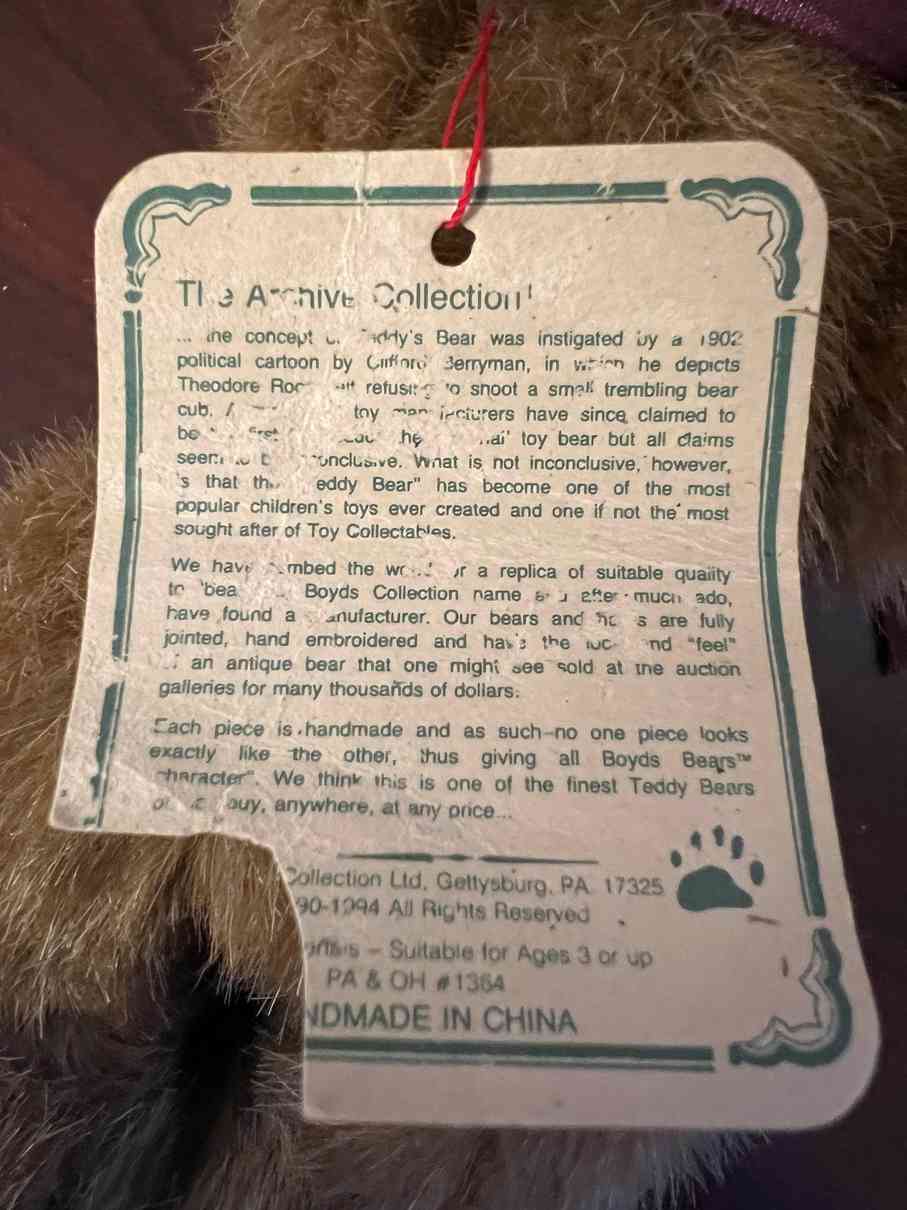 The Archive Collection
... the concept Teddy's Bear was instigated by a 1902
political cartoon by Clifford Berryman, in which he depicts
Theodore refusing to shoot a small trembling bear
cub. toy manufacturers have since claimed to
be first the toy bear but all claims
seem to inconclusive. What is not inconclusive, however,
is that eddy Bear" has become one of the most
popular children's toys ever created and one if not the most
sought after of Toy Collectables.
We have the a replica of suitable quality
to Boyds Collection name and after much ado,
have found a manufacturer. Our bears and are fully
jointed, hand embroidered and have the and "feel"
an antique bear that one might see sold at the auction
galleries for many thousands of dollars.
Each piece is handmade and as such-no one piece looks
exactly like the other, thus giving all Boyds Bears™
character". We think this is one of the finest Teddy Bears
buy, anywhere, at any price...
Collection Ltd, Gettysburg, PA. 17325
90-1994 All Rights Reserved
– Suitable for Ages 3 or up
PA & OH #1364
NDMADE IN CHINA